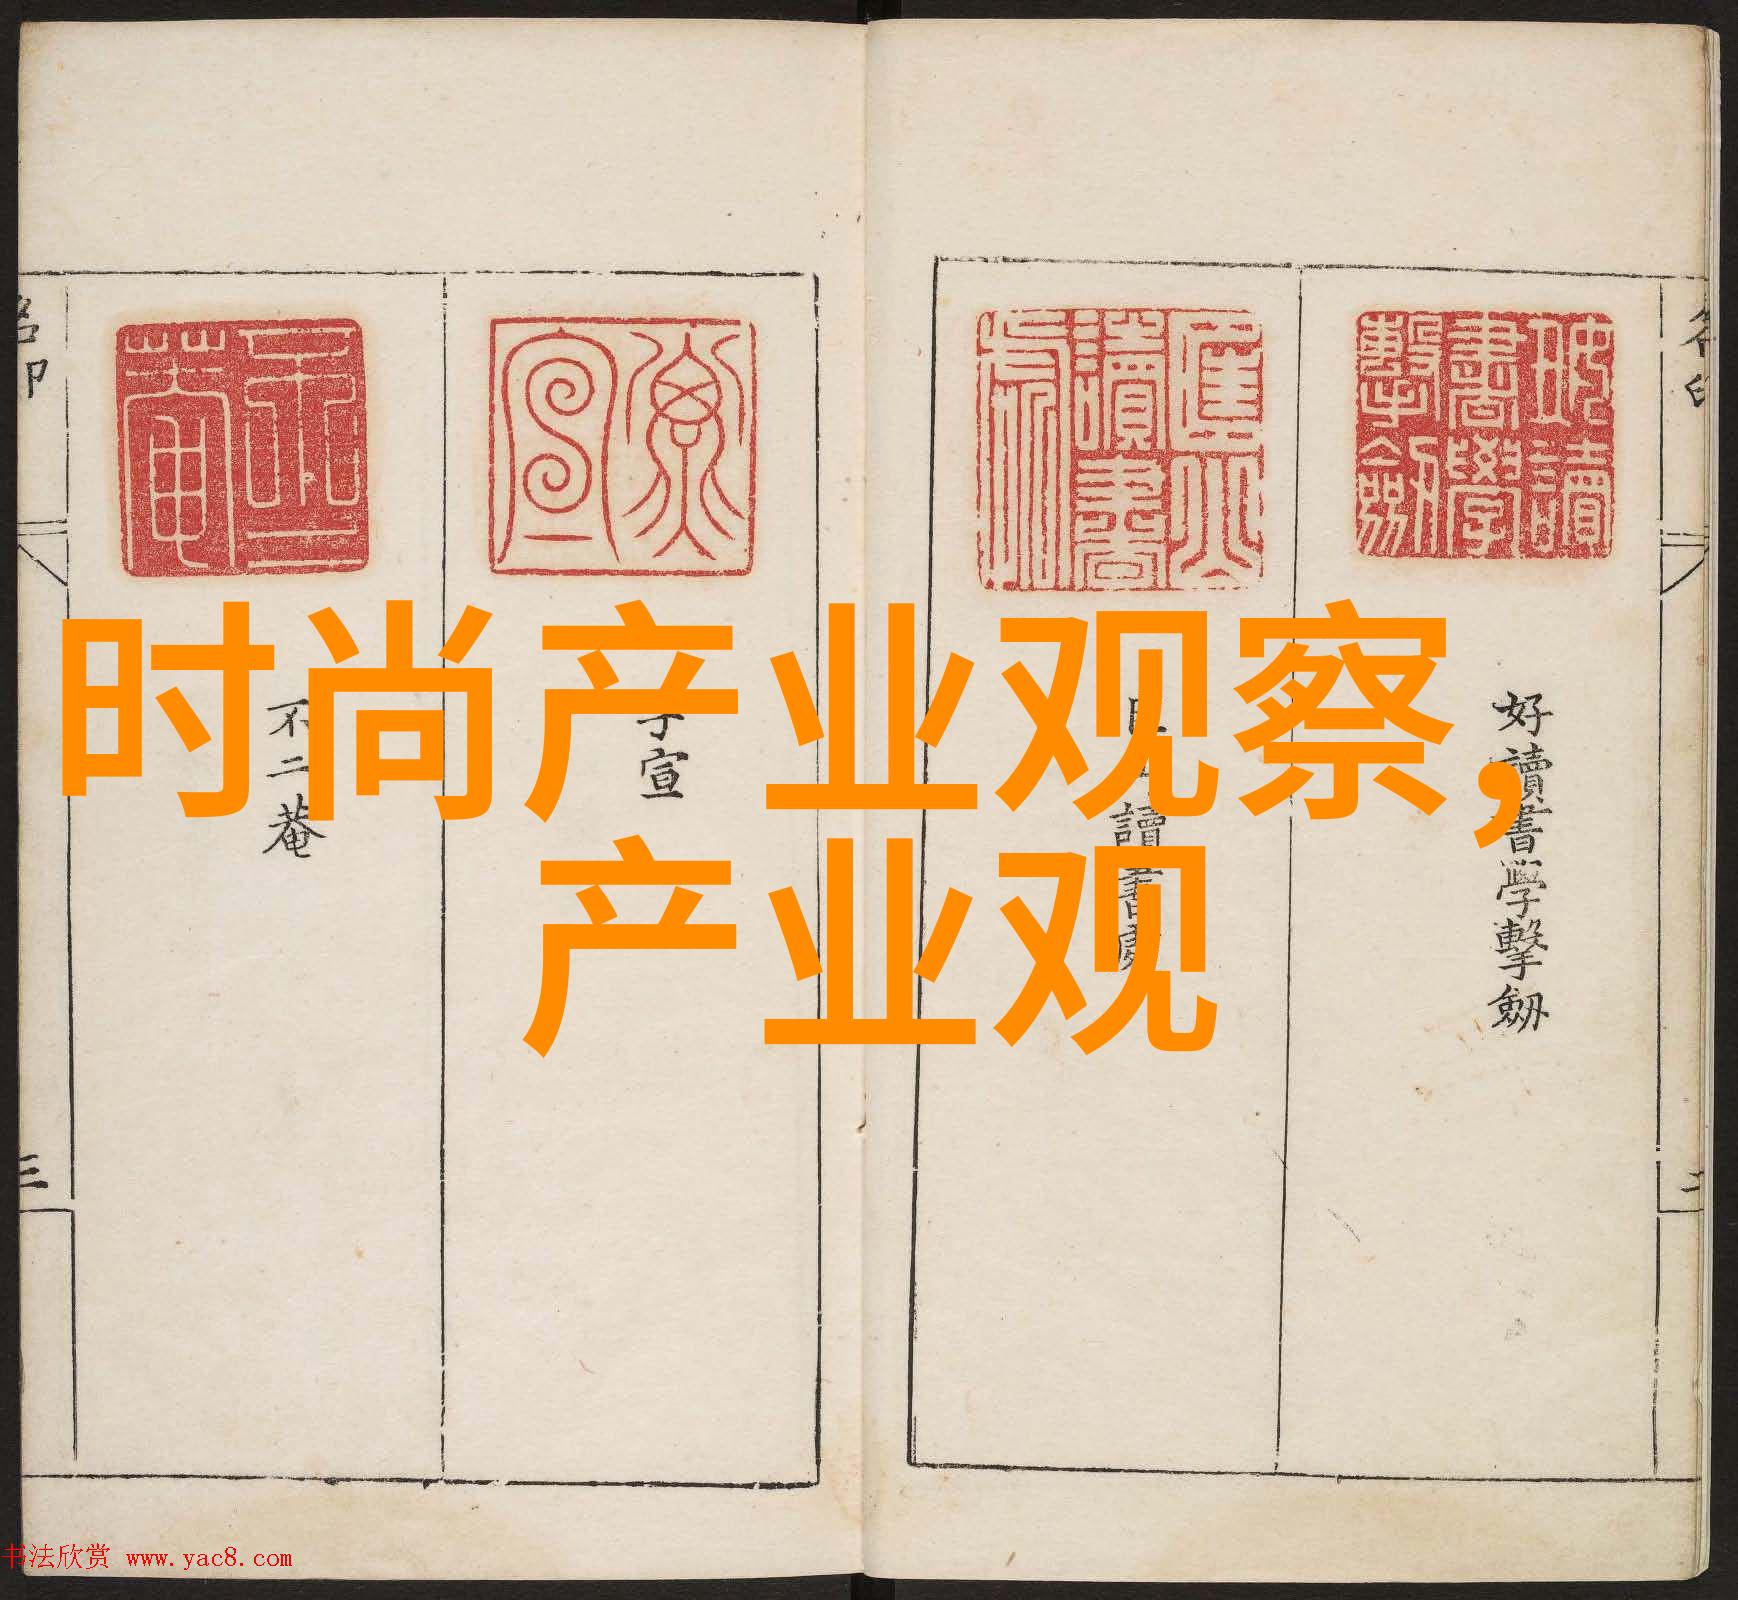 时尚产业观察，
产业观
好讀書學擊劒
讀書處
子宣
不二菴
三
书法欣赏 www.yac8.com